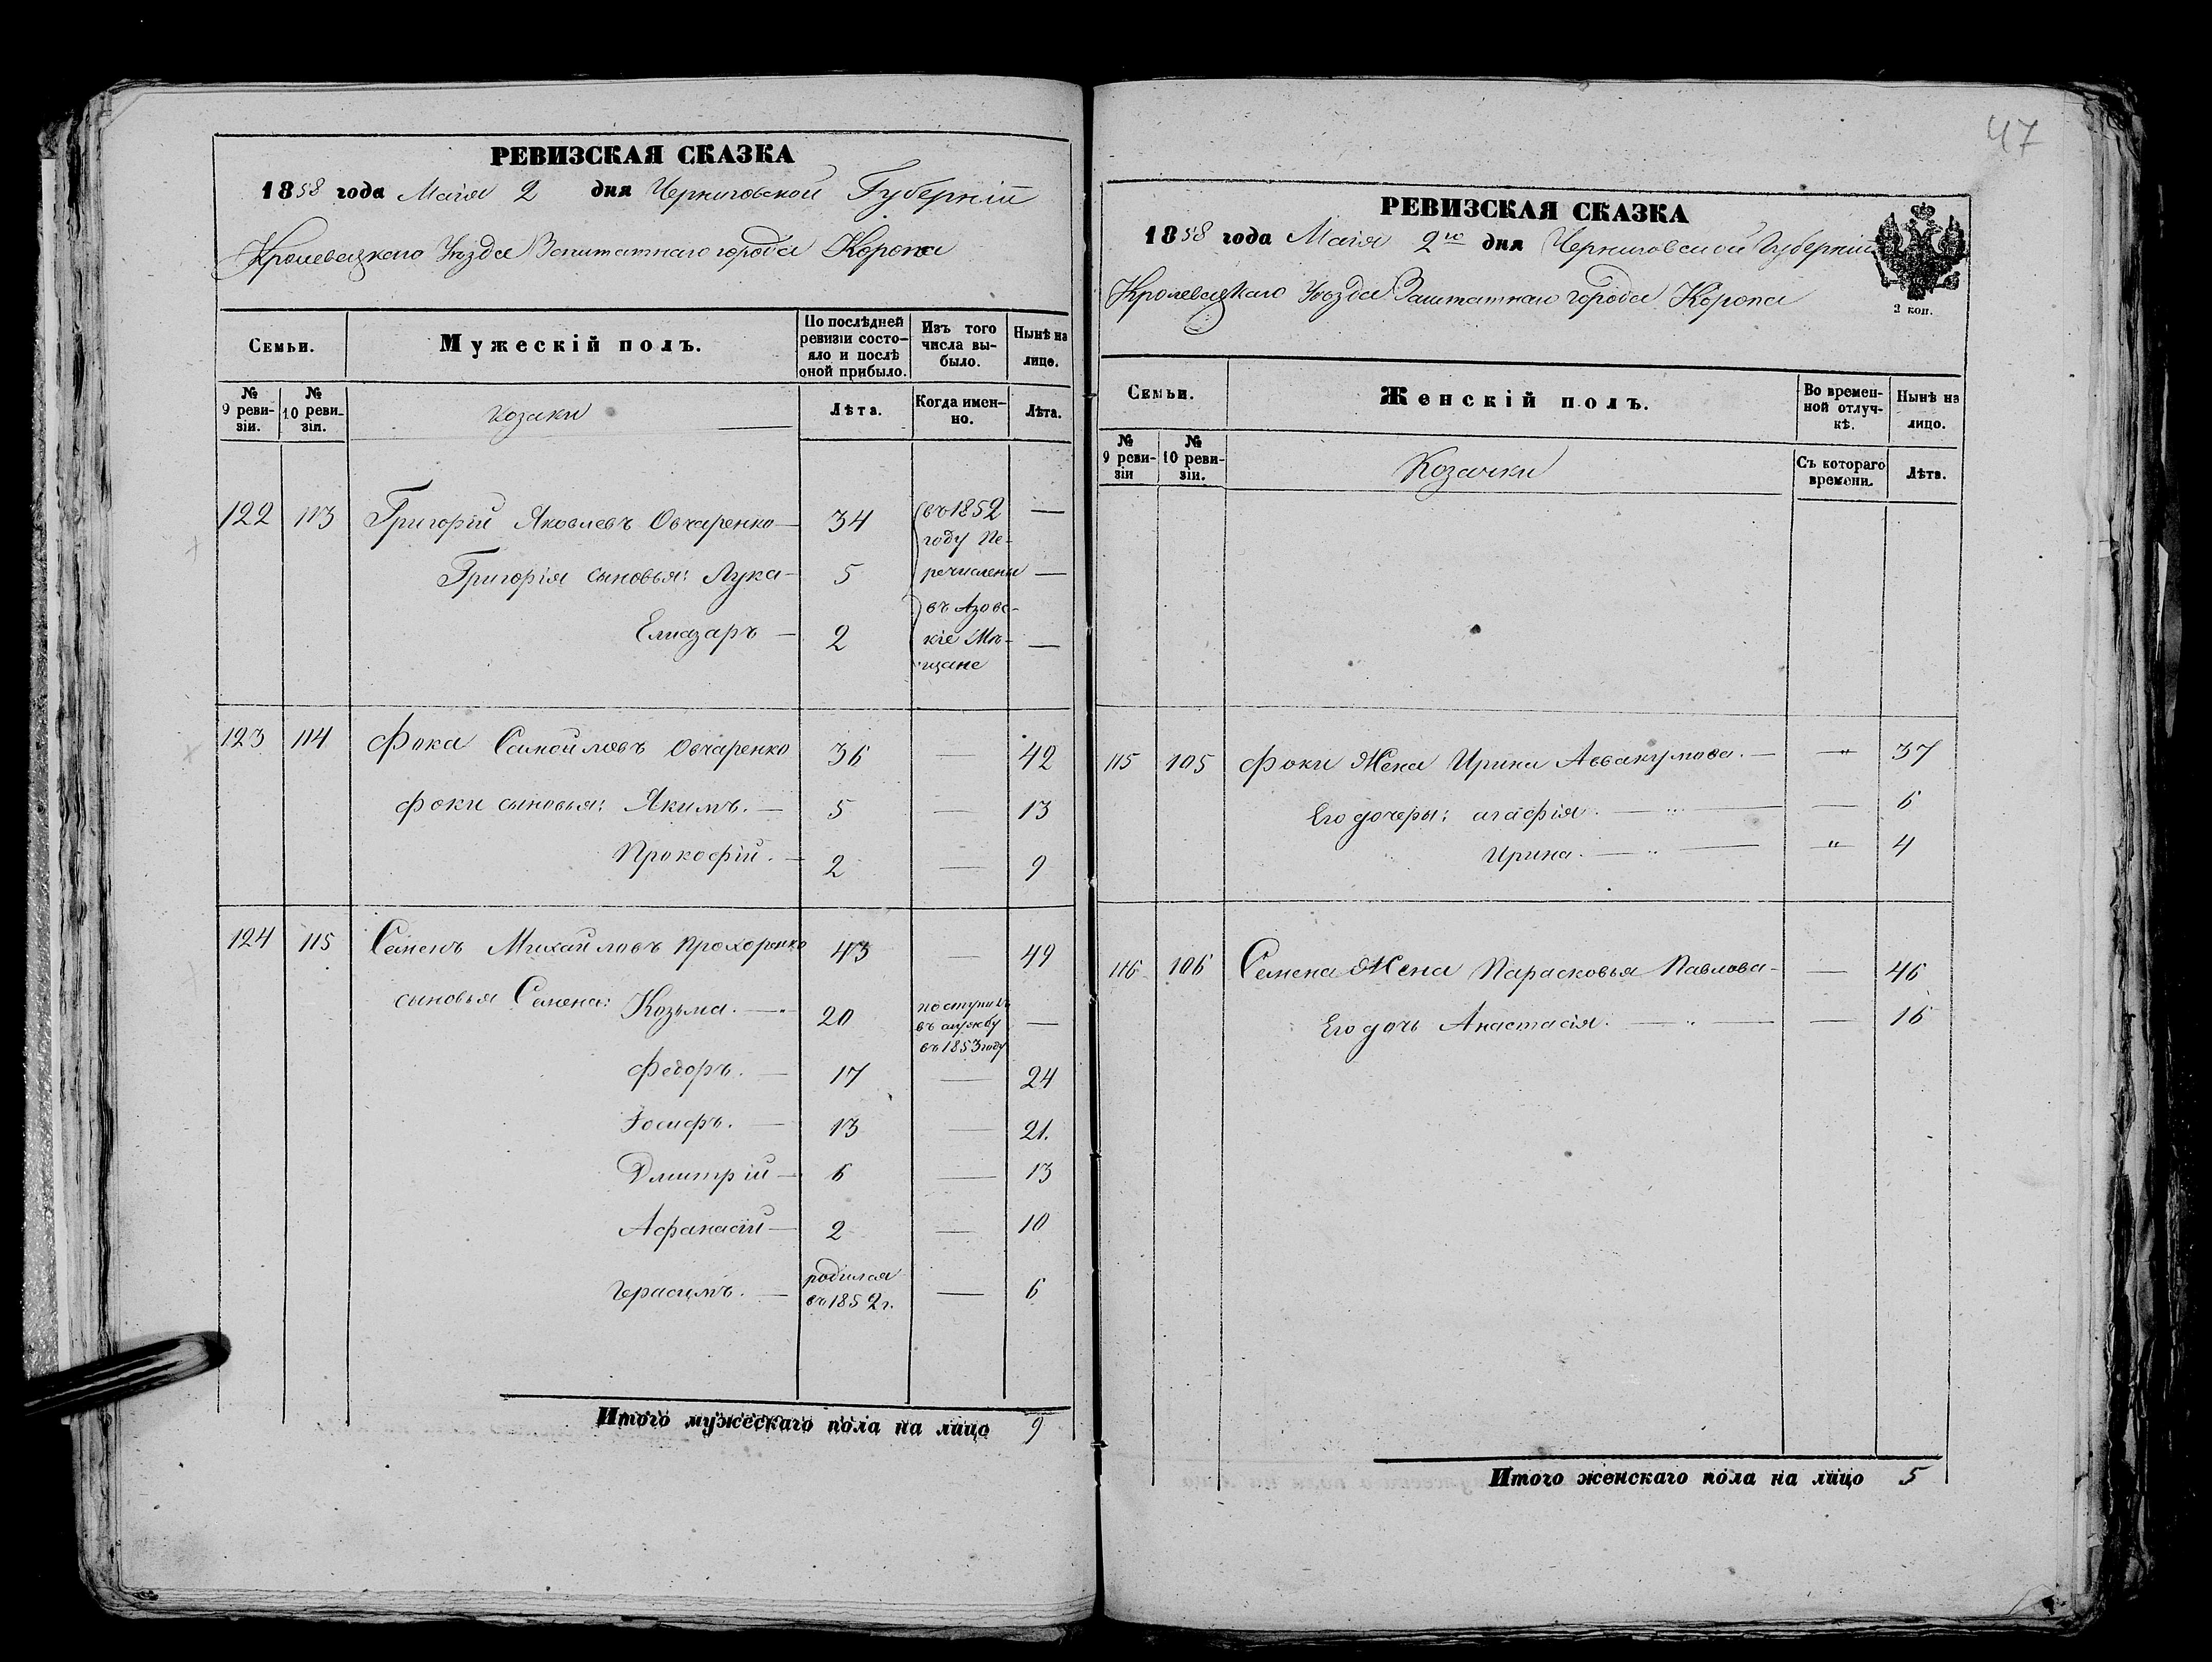 47
РЕВИЗСКАЯ СКАЗКА
1858 года Маія 2 дня Черниговской Губерніи
Кролевецкаго Уѣзда Заштатнаго города Коропа
Семьи.
Мужескій полъ.
По послѣдней ревизіи состояло и послѣ оной прибыло.
Изъ того числа выбыло.
Нынѣ на лице.
№ 9 ревизіи.
№ 10 ревизіи.
козаки
Лѣта.
Когда именно.
Лѣта.
122 113 Григорій Яковлевъ Овчаренко — 34 въ 1852 —
году Пе-
Григорія сыновья: Лука — 5 речислены —
въ Азовс-
Елиазаръ — 2 кіе Мѣ- —
щане
123 114 Фока Самойловъ Овчаренко 36 — 42
Фоки сыновья: Якимъ. — 5 — 13
Прокофій. — 2 — 9
124 115 Семенъ Михайловъ Прохоренко 43 — 49
поступилъ
сыновья Семена: Козьма. — 20 въ службу —
въ 1853 году
Федоръ. — 17 — 24
Іосифъ. — 13 — 21.
Дмитрій — 6 — 13
Афанасій — 2 — 10
родился
Герасимъ. — въ 1852 г. — 6
Итого мужескаго пола на лицо 9
РЕВИЗСКАЯ СКАЗКА
1858 года Маія 2го дня Черниговской Губерніи
Кролевецкаго Уѣзда Заштатнаго города Коропа
2 коп.
Семьи.
Женскій полъ.
Во временной отлучкѣ.
Нынѣ на лицо.
№ 9 ревизіи
№ 10 ревизіи.
Козачки
Съ котораго времени.
Лѣта.
115 105 Фоки Жена Ирина Аввакумова. — — " 37
Его дочеры: агафія. — " — — 6
Ирина. — " — " 4
116 106 Семена Жена Парасковья Павлова — — 46
Его дочь Анастасія. — " — — 16
Итого женскаго пола на лицо 5